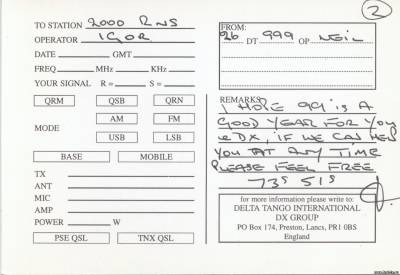 2
TO STATION 2000 RNS
OPERATOR IGOR
DATE GMT
FREQ MHz KHz
YOUR SIGNAL R = S =
QRM QSB QRN
MODE
AM FM
USB LSB
BASE MOBILE
TX
ANT
MIC
AMP
POWER W
PSE QSL TNX QSL
FROM:
26 DT 999 OP NEIL
REMARKS
I HOPE 99 IS A
GOOD YEAR FOR YOU
& DX, IF WE CAN HELP
YOU AT ANY TIME
PLEASE FEEL FREE
73s 51s
for more information please write to:
DELTA TANGO INTERNATIONAL
DX GROUP
PO Box 174, Preston, Lancs, PR1 0BS
England